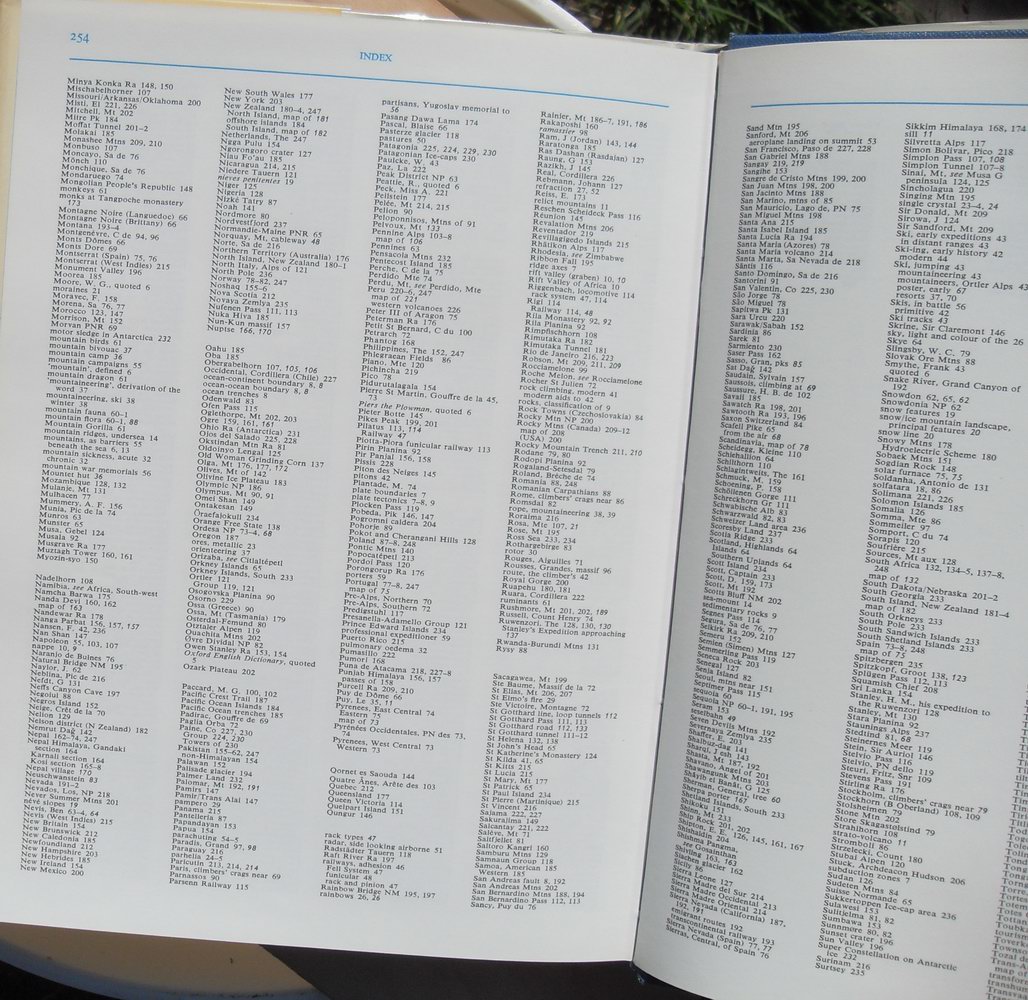 254
INDEX
Minya Konka Ra 148, 150
Mischabelhorner 107
Missouri/Arkansas/Oklahoma 200
Misti, El 221, 226
Mitchell, Mt 202
Mitre Pk 184
Moffat Tunnel 201–2
Molakai 185
Monashee Mtns 209, 210
Monbuso 107
Moncayo, Sa de 76
Mönch 110
Monchique, Sa de 76
Mondaruego 74
Mongolian People's Republic 148
monkeys 61
monks at Tangpoche monastery
173
Montagne Noire (Languedoc) 66
Montagne Noire (Brittany) 66
Montana 193–4
Montgenèvre, C de 94, 96
Monts Dômes 66
Monts Dore 69
Montserrat (Spain) 75, 76
Montserrat (West Indies) 215
Monument Valley 196
Moorea 185
Moore, W. G., quoted 6
moraines 21
Moravec, F. 158
Morena, Sa 76, 77
Morocco 123, 147
Morrison, Mt 152
Morvan PNR 69
motor sledge in Antarctica 232
mountain birds 61
mountain bivouac 37
mountain camp 36
mountain campaigns 55
'mountain', defined 6
mountain dragon 61
'mountaineering', derivation of the
word 37
mountaineering, ski 38
winter 38
mountain fauna 60–1
mountain flora 60–1, 88
Mountain Gorilla 61
mountain ridges, undersea 14
mountains, as barriers 55
beneath the sea 6, 13
mountain sickness, acute 32
chronic 32
mountain war memorials 56
Mountet Hut 36
Mozambique 128, 132
Mulanje, Mt 131
Mulhacen 77
Mummery, A. F. 156
Munia, Pic de la 74
Munros 63
Munster 65
Musa, Gebel 124
Musala 92
Musgrave Ra 177
Muztagh Tower 160, 161
Myozin-syo 150
Nadelhorn 108
Namibia, see Africa, South-west
Namcha Barwa 175
Nanda Devi 160, 162
map of 163
Nandewar Ra 178
Nanga Parbat 156, 157, 157
Nansen, F. 42, 236
Nan Shan 147
Napoleon 55, 103, 107
nappe 10, 9
Naranjo de Bulnes 76
Natural Bridge NM 195
Naylor, J. 62
Neblina, Pic de 216
Nefdt, G. 131
Neffs Canyon Cave 197
Negoiul 88
Negros Island 152
Neige, Crêt de la 70
Nelion 129
Nelson district (N Zealand) 182
Nemrut Dağ 142
Nepal 162–74, 247
Nepal Himalaya, Gandaki
section 164
Karnali section 164
Kosi section 165–8
Nepal village 170
Neuschwanstein 83
Nevada 191–2
Nevados, Los, NP 218
Never Summer Mtns 201
névé slopes 19
Nevis, Ben 63–4, 64
Nevis (West Indies) 215
New Britain 154
New Brunswick 212
New Caledonia 185
Newfoundland 212
New Hampshire 203
New Hebrides 185
New Ireland 154
New Mexico 200
New South Wales 177
New York 203
New Zealand 180–4, 247
North Island, map of 181
offshore islands 184
South Island, map of 182
Netherlands, The 247
Ngga Pulu 154
Ngorongoro crater 127
Niau Fo'au 185
Nicaragua 214, 215
Niedere Tauern 121
nieves penitentes 19
Niger 125
Nigeria 128
Nizké Tatry 87
Noah 141
Nordmore 80
Nordvestfjord 237
Normandie-Maine PNR 65
Norquay, Mt, cableway 48
Norte, Sa de 216
Northern Territory (Australia) 176
North Island, New Zealand 180–1
North Italy, Alps of 121
North Pole 236
Norway 78–82, 247
Noshaq 155–6
Nova Scotia 212
Novaya Zemlya 235
Nufenen Pass 111, 113
Nuka Hiva 185
Nun-Kun massif 157
Nuptse 166, 170
Oahu 185
Oba 185
Obergabelhorn 107, 105, 106
Occidental, Cordillera (Chile) 227
ocean-continent boundary 8, 8
ocean-ocean boundary 8, 8
ocean trenches 8
Odenwald 83
Ofen Pass 115
Oglethorpe, Mt 202, 203
Ogre 159, 161, 161
Ohio Ra (Antarctica) 231
Ojos del Salado 225, 228
Okstindan Mtn Ra 81
Oldoinyo Lengai 125
Old Woman Grinding Corn 137
Olga, Mt 176, 177, 172
Olives, Mt of 142
Olivine Ice Plateau 183
Olympic NP 186
Olympus, Mt 90, 91
Omei Shan 149
Ontakesan 149
Öraefajökull 234
Orange Free State 138
Ordesa NP 73–4, 68
Oregon 187
ores, metallic 23
orienteering 37
Orizaba, see Citlaltépetl
Orkney Islands 65
Orkney Islands, South 233
Ortler 121
Group 119, 121
Osogovska Planina 90
Osorno 229
Ossa (Greece) 90
Ossa, Mt (Tasmania) 179
Osterdal-Femund 80
Ötztaler Alpen 119
Ouachita Mtns 202
Øyre Dividal NP 82
Owen Stanley Ra 153, 154
Oxford English Dictionary, quoted
5
Ozark Plateau 202
Paccard, M. G. 100, 102
Pacific Crest Trail 187
Pacific Ocean Islands 184
Pacific Ocean trenches 185
Padirac, Gouffre de 69
Paglia Orba 72
Paine, Co 227, 230
Group 224, 230
Towers of 230
Pakistan 155–62, 247
non-Himalayan 154
Palawan 152
Palisade glacier 194
Palmer Land 232
Palomar, Mt 192, 191
Pamirs 147
Pamir/Trans Alai 147
pampero 29
Panama 215
Pantelleria 87
Papandayan 153
Papua 154
parachuting 54–5
Paradis, Grand 97, 98
Paraguay 216
parhelia 24–5
Paricutin 213, 214, 214
Paris, climbers' crags near 69
Parnassos 90
Parsenn Railway 115
partisans, Yugoslav memorial to
56
Pasang Dawa Lama 174
Pascal, Blaise 66
Pasterze glacier 118
pastures 50
Patagonia 225, 224, 229, 230
Patagonian Ice-caps 230
Paulcke, W. 43
Paz, La 222
Peak District NP 63
Peattie, R., quoted 6
Peck, Miss A. 221
Peilstein 177
Pelée, Mt 214, 215
Pelion 90
Peloponnisos, Mtns of 91
Pelvoux, Mt 133
Pennine Alps 103–8
map of 106
Pennines 63
Pensacola Mtns 232
Pentecost Island 185
Perche, C de la 75
Perdido, Mte 74
Perdu, Mt, see Perdido, Mte
Peru 220–6, 247
map of 221
western volcanoes 226
Peter III of Aragon 75
Peterman Ra 176
Petit St Bernard, C du 100
Petrarch 72
Phantog 168
Philippines, The 152, 247
Phlegraean Fields 86
Piano, Mte 120
Pichincha 219
Pico 78
Pidurutalagala 154
Pierre St Martin, Gouffre de la 45,
73
Piers the Plowman, quoted 6
Pieter Botte 145
Pikes Peak 199, 201
Pilatus 113, 114
Railway 47
Piotta-Piora funicular railway 113
Pirin Planina 92
Pir Panjal 156, 158
Pissis 228
Piton des Neiges 145
pitons 42
Plantade, M. 74
plate boundaries 7
plate tectonics 7–8, 9
Plocken Pass 119
Pobeda, Pik 146, 147
Pogromni caldera 204
Pohorje 89
Pokot and Cherangani Hills 128
Poland 87–8, 248
Pontic Mtns 140
Popocatépetl 213
Pordoi Pass 120
Porongorup Ra 176
porters 59
Portugal 77–8, 247
map of 75
Pre-Alps, Northern 70
Pre-Alps, Southern 72
Predigstuhl 117
Presanella-Adamello Group 121
Prince Edward Islands 234
professional expeditioner 59
Puerto Rico 215
pulmonary oedema 32
Pumasillo 222
Pumori 168
Puna de Atacama 218, 227–8
Punjab Himalaya 156, 157
passes of 158
Purcell Ra 209, 210
Puy de Dôme 66
Puy, Le 35, 11
Pyrenees, East Central 74
Eastern 75
map of 73
Pyrénées Occidentales, PN des 73,
74
Pyrenees, West Central 73
Western 73
Qornet es Saouda 144
Quatre Ânes, Arête des 103
Quebec 212
Queensland 177
Queen Victoria 114
Quelpart Island 151
Qungur 146
rack types 47
radar, side looking airborne 51
Radstädter Tauern 118
Raft River Ra 197
railways, adhesion 46
Fell System 47
funicular 48
rack and pinion 47
Rainbow Bridge NM 195, 197
rainbows 26, 26
Rainier, Mt 186–7, 191, 186
Rakaposhi 160
ramassier 98
Ram, J (Jordan) 143, 144
Raratonga 185
Ras Dashan (Rasdajan) 127
Raung, G 153
Razikh, J 145
Real, Cordillera 226
Rebmann, Johann 127
refraction 27, 52
Reiss, E. 173
relict mountains 11
Reschen Scheideck Pass 116
Réunion 145
Revalation Mtns 206
Reventador 219
Revillagigedo Islands 215
Rhätikon Alps 117
Rhodesia, see Zimbabwe
Ribbon Fall 195
ridge axes 7
rift valley (graben) 10, 10
Rift Valley of Africa 10
Riggenbach, locomotive 114
rack system 47, 114
Rigi 114
Railway 114, 48
Rila Monastery 92, 92
Rila Planina 92
Rimpfischhorn 108
Rimutaka Ra 182
Rimutaka Tunnel 181
Rio de Janeiro 216, 223
Robson, Mt 209, 211, 209
Rocciamelone 99
Roche Melon, see Rocciamelone
Rocher St Julien 72
rock climbing, modern 41
modern aids to 42
rocks, classification of 9
Rock Towns (Czechoslovakia) 84
Rocky Mtn NP 200
Rocky Mtns (Canada) 209–12
map of 208
(USA) 200
Rocky Mountain Trench 211, 210
Rodane 79, 80
Rodopi Planina 92
Rogaland-Setesdal 79
Roland, Brèche de 74
Romania 88, 248
Romanian Carpathians 88
Rome, climbers' crags near 86
Romsdal 82
rope, mountaineering 38, 39
Roraima 216
Rosa, Mte 107, 21
Rose, Mt 195
Ross Sea 233, 234
Rothargebirge 83
rotor 30
Rouges, Aiguilles 71
Rousses, Grandes, massif 96
route, the climber's 42
Royal Gorge 200
Ruapehu 180, 181
Ruara, Cordillera 222
ruminants 61
Rushmore, Mt 201, 202, 189
Russell, Count Henry 74
Ruwenzori, The 128, 130, 130
Stanley's Expedition approaching
137
Rwanda-Burundi Mtns 131
Rysy 88
Sacagawea, Mt 199
Ste Baume, Massif de la 72
St Elias, Mt 206, 207
St Elmo's fire 29
Ste Victoire, Montagne 72
St Gotthard line, loop tunnels 112
St Gotthard Pass 111, 113
St Gotthard road 112, 133
St Gotthard tunnel 11–12
St Helena 132, 138
St John's Head 65
St Katherine's Monastery 124
St Kilda 41, 65
St Kitts 215
St Lucia 215
St Mary, Mt 177
St Patrick 65
St Paul Island 234
St Pierre (Martinique) 215
St Vincent 216
Sajama 222, 227
Sakurajima 149
Salcantay 221, 222
Salève, Mt 71
Saltfjellet 81
Saltoro Kangri 160
Samburu Mtns 129
Samnaun Group 118
Samoa, American 185
Western 185
San Andreas fault 8, 192
San Andreas Mtns 202
San Bernardino Mtns 188, 194
San Bernardino Pass 112, 113
Sancy, Puy du 76
Sand Mtn 195
Sanford, Mt 206
aeroplane landing on summit 53
San Francisco, Paso de 227, 228
San Gabriel Mtns 188
Sangay 219, 219
Sangihe 153
Sangre de Cristo Mtns 199, 200
San Juan Mtns 198, 200
San Jacinto Mtns 188
San Marino, mtns of 85
San Mauricio, Lago de, PN 75
San Miguel Mtns 198
Santa Ana 215
Santa Isabel Island 185
Santa Lucia Ra 194
Santa Maria (Azores) 78
Santa Maria volcano 214
Santa Marta, Sa Nevada de 218
Säntis 116
Santo Domingo, Sa de 216
Santorini 91
San Valentin, Co 225, 230
São Jorge 78
São Miguel 78
Sapitwa Pk 131
Sara Urcu 220
Sarawak/Sabah 152
Sardinia 86
Sarek 81
Sarmiento 230
Saser Pass 162
Sasso, Gran, pks 85
Sat Dağ 142
Saudain, Sylvain 157
Saussois, climbing at 69
Saussure, H. B. de 102
Savaii 185
Sawatch Ra 198, 201
Sawtooth Ra 193, 196
Saxon Switzerland 84
Scafell Pike 65
from the air 68
Scandinavia, map of 78
Scheidegg, Kleine 110
Schiehallion 64
Schilthorn 110
Schlagintweits, The 161
Schmuck, M. 159
Schoening, P. 158
Schöllenen Gorge 111
Schreckhorn Gr 111
Schwabische Alb 83
Schwarzwald 82, 83
Schweizer Land area 236
Scoresby Land 237
Scotia Ridge 233
Scotland, Highlands 64
Islands 64
Southern Uplands 64
Scott Island 234
Scott, Captain 233
Scott, D. 159, 173
Scott, Mt 192
Scotts Bluff NM 202
sea-mount 14
sedimentary rocks 9
Segnes Pass 114
Segura, Sa de 76, 77
Selkirk Ra 209, 210
Semeru 152
Semien (Simen) Mtns 127
Semmering Pass 119
Seneca Rock 203
Senegal 127
Senja Island 82
Seoul, mtns near 151
Septimer Pass 115
sequoia 60
Sequoia NP 60–1, 191, 195
Seram 153
seselbahn 49
Seven Devils Mtns 192
Severnaya Zemlya 235
Shaffer, E. 54
Shalbuz-dag 141
Sharqi, J esh 143
Shasta, Mt 187, 192
Shavano, Angel of 201
Shawangunk Mtns 203
Shâyib el Banât, G 125
Sherman, General, tree 60
Sherpa porter 167
Shetland Islands 65
Shetland Islands, South 233
Shikoku 151
Shilla 37
Ship Rock 201, 202
Shipton, E. E. 126, 145, 161, 167
Shishaldin 204
Shisha Pangma,
see Gosainthan
Shivling 163, 163
Siachen glacier 162
Sicily 86
Sierra Leone 127
Sierra Madre del Sur 214
Sierra Madre Occidental 213
Sierra Madre Oriental 214
Sierra Nevada (California) 187,
192, 191
emigrant routes 192
transcontinental railway 193
Sierra Nevada (Spain) 77, 77
Sierras, Central, of Spain 76
Sikkim Himalaya 168, 174
sill 11
Silvretta Alps 117
Simon Bolivar, Pico 218
Simplon Pass 107, 108
Simplon Tunnel 107–8
Sinai, Mt, see Musa G
peninsula 124, 125
Sincholagua 220
Singing Mtn 195
single crystal 23–4, 24
Sir Donald, Mt 209
Sirowa, J 124
Sir Sandford, Mt 209
Ski, early expeditions 43
in distant ranges 43
Ski-ing, early history 42
modern 44
Ski, jumping 43
mountaineering 43
mountaineers, Ortler Alps 43
poster, early 67
resorts 37, 70
Skis, in battle 56
primitive 42
Ski tracks 43
Skrine, Sir Claremont 146
sky, light and colour of the 26
Skye 64
Slingsby, W. C. 79
Slovak Ore Mtns 88
Smythe, Frank 43
quoted 6
Snake River, Grand Canyon of
192
Snowdon 62, 65, 62
Snowdonia NP 62
snow features 19
snow/ice mountain landscape,
principal features 20
snow line 20
Snowy Mtns 178
Hydroelectric Scheme 180
Sobaek Mtns 151
Sogdian Rock 148
solar furnace 75, 75
Soldanha, Antonio de 131
solfatara 18, 86
Solimana 221, 226
Solomon Islands 185
Somalia 126
Somma, Mte 86
Sommeiller 97
Somport, C du 74
Sorapis 120
Soufrière 215
Sources, Mt aux 128
South Africa 132, 134–5, 137–8,
248
map of 132
South Dakota/Nebraska 201–2
South Georgia 233
South Island, New Zealand 181–4
map of 182
South Orkneys 233
South Pole 233
South Sandwich Islands 233
South Shetland Islands 233
Spain 73–8, 248
map of 75
Spitzbergen 235
Spitzkopf, Groot 138, 123
Splügen Pass 112, 113
Squamish Chief 208
Sri Lanka 154
Stanley, H. M., his expedition to
the Ruwenzori 128
Stanley, Mt 130
Stara Planina 92
Staunings Alps 237
Stedtind 81, 68
Steinernes Meer 119
Stein, Sir Auriol 146
Stelvio Pass 116
Stelvio, PN dello 119
Steuri, Fritz, Snr 109
Stevens Pass 191
Stirling Ra 176
Stockholm, climbers' crags near 79
Stockhorn (B Oberland) 108, 109
Stolsheimen 79
Stone Mtn 202
Store Skagastolstind 79
Strahlhorn 108
strato-volcano 11
Stromboli 86
Strzelecki, Count 180
Stubai Alpen 120
Stuck, Archdeacon Hudson 206
subduction zones 7
Sudan 125
Sudeten Mtns 84
Suisse Normande 65
Sukkertoppen Ice-cap area 236
Sulawesi 153
Sulitjelma 81, 82
Sumbawa 153
Sunnmøre 80, 82
Sunset crater 196
Sun Valley 196
Super Constellation on Antarctic
ice 232
Surinam 216
Surtsey 235